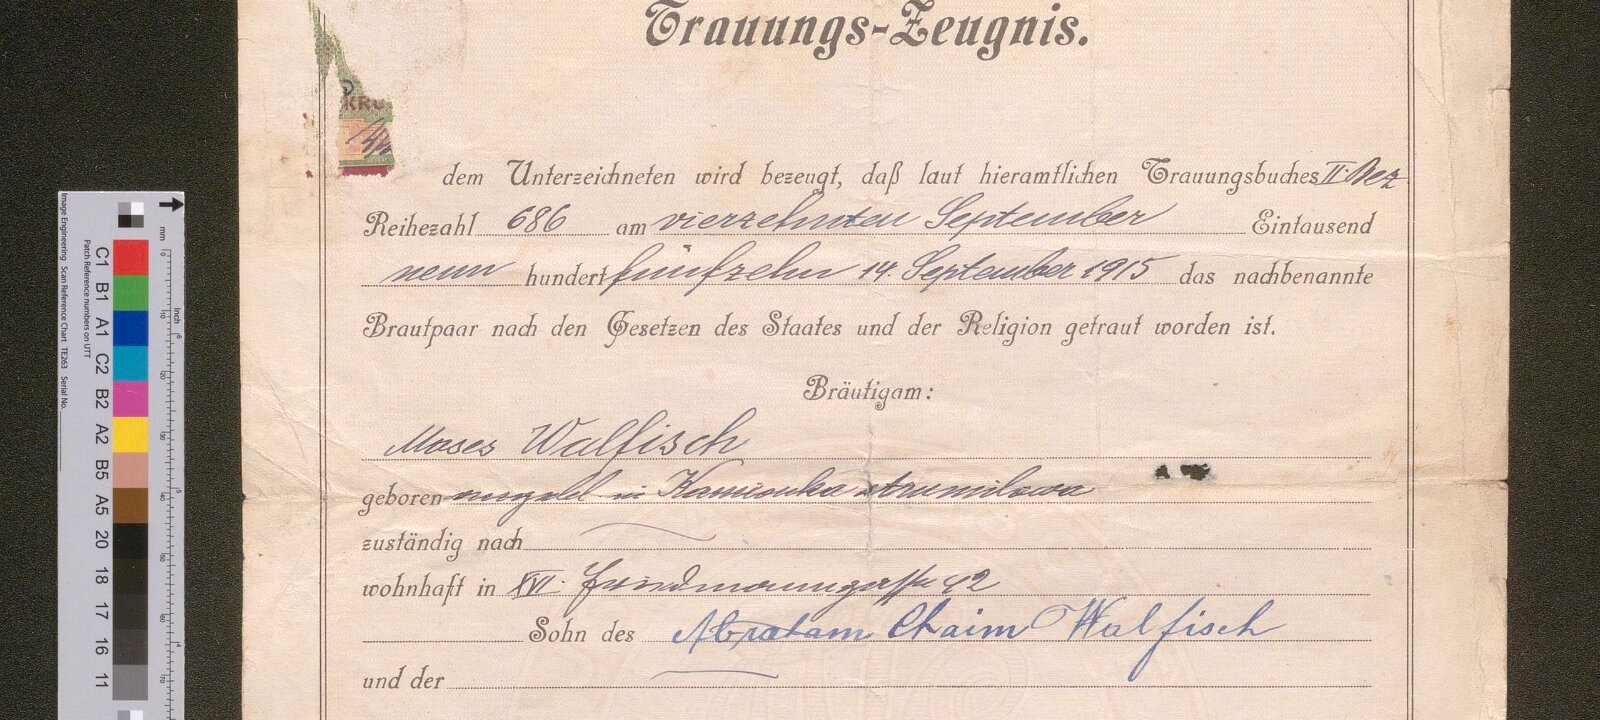 Trauungs-Zeugnis.
KRO
dem Unterzeichneten wird bezeugt, daß laut hieramtlichen Trauungsbuches II. Bez
Reihezahl 686 am vierzehnten September Eintausend
neun hundert fünfzehn 14. September 1915 das nachbenannte
Brautpaar nach den Gesetzen des Staates und der Religion getraut worden ist.
Bräutigam:
Moses Walfisch
geboren in Kamionka strumilowa
zuständig nach
wohnhaft in XVI. Friedmanngasse 42
Sohn des Abraham Chaim Walfisch
und der
Image Engineering Scan Reference Chart TE263 Serial No.
Patch Reference numbers on UTT
C1 B1 A1 C2 B2 A2 B5 A5 20 18 17 16 11
mm
inch